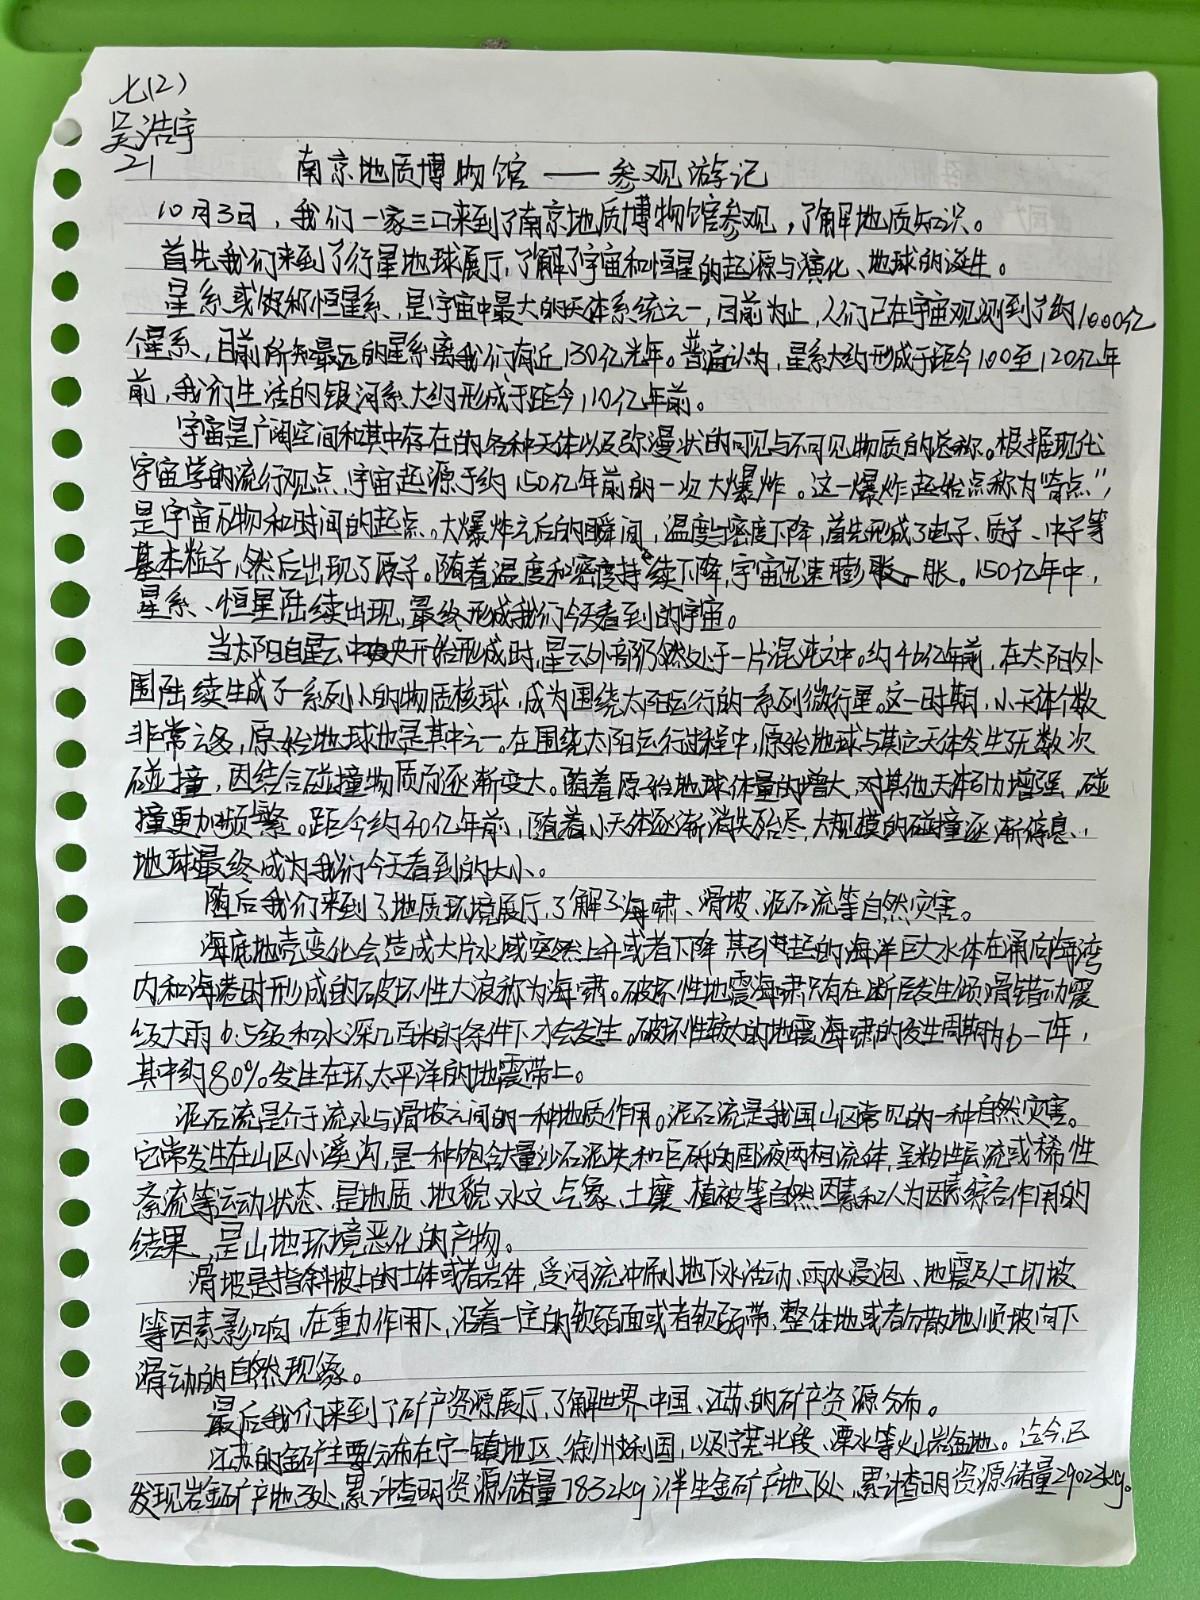 七(2)
吴浩宇
21
南京地质博物馆——参观游记
10月3日，我们一家三口来到了南京地质博物馆参观，了解地质知识。
首先我们来到了行星地球展厅，了解了宇宙和恒星的起源与演化、地球的诞生。
星系或你称恒星系，是宇宙中最大的天体系统之一，目前为止，人们已在宇宙观测到了约1000亿
个星系，目前所知最远的星系离我们有近130亿光年。普遍认为，星系大约形成于距今100至120亿年
前，我们生活的银河系大约形成于距今110亿年前。
宇宙是广阔空间和其中存在的各种天体以及弥漫状的可见与不可见物质的总称。根据现代
宇宙学的流行观点，宇宙起源于约150亿年前的一次大爆炸。这一爆炸起始点称为“奇点”，
是宇宙万物和时间的起点。大爆炸之后的瞬间，温度与密度下降，首先形成了电子、质子、中子等
基本粒子，然后出现了原子。随着温度和密度持续下降，宇宙迅速膨胀。150亿年中，
星系、恒星陆续出现，最终形成我们今天看到的宇宙。
当太阳自星云中央开始形成时，星云外部仍然处于一片混沌之中。约46亿年前，在太阳外
围陆续生成了一系列小的物质核球，成为围绕太阳运行的一系列微行星。这一时期，小天体个数
非常之多，原始地球也是其中之一。在围绕太阳运行过程中，原始地球与其它天体发生无数次
碰撞，因结合碰撞物质而逐渐变大。随着原始地球体量的增大，对其他天体引力增强，碰
撞更加频繁。距今约40亿年前，随着小天体逐渐消失殆尽，大规模的碰撞逐渐停息，
地球最终成为我们今天看到的大小。
随后我们来到了地质环境展厅，了解了海啸、滑坡、泥石流等自然灾害。
海底地壳变化会造成大片水域突然上升或者下降，其引起的海洋巨大水体在涌向海湾
内和海港时形成的破坏性大浪称为海啸。破坏性地震海啸只有在断层发生倾滑错动震
级大雨6.5级和水深几百米的条件下才会发生。破坏性较大的地震海啸的发生周期为6-7年，
其中约80%发生在环太平洋的地震带上。
泥石流是介于流水与滑坡之间的一种地质作用。泥石流是我国山区常见的一种自然灾害。
它常发生在山区小溪沟，是一种饱含大量沙石泥块和巨砾的固液两相流体，呈粘性层流或稀性
紊流等运动状态，是地质、地貌、水文、气象、土壤、植被等自然因素和人为因素综合作用的
结果，是山地环境恶化的产物。
滑坡是指斜坡上的土体或者岩体，受河流冲刷、地下水活动、雨水浸泡、地震及人工切坡
等因素影响，在重力作用下，沿着一定的软弱面或者软弱带，整体地或者分散地顺坡向下
滑动的自然现象。
最后我们来到了矿产资源展厅，了解世界、中国、江苏的矿产资源分布。
江苏的金矿主要分布在宁—镇地区、徐州利国，以及宁芜北段、溧水等火山岩盆地。迄今，已
发现岩金矿产地3处，累计查明资源储量7832kg；伴生金矿产地7处，累计查明资源储量29023kg。